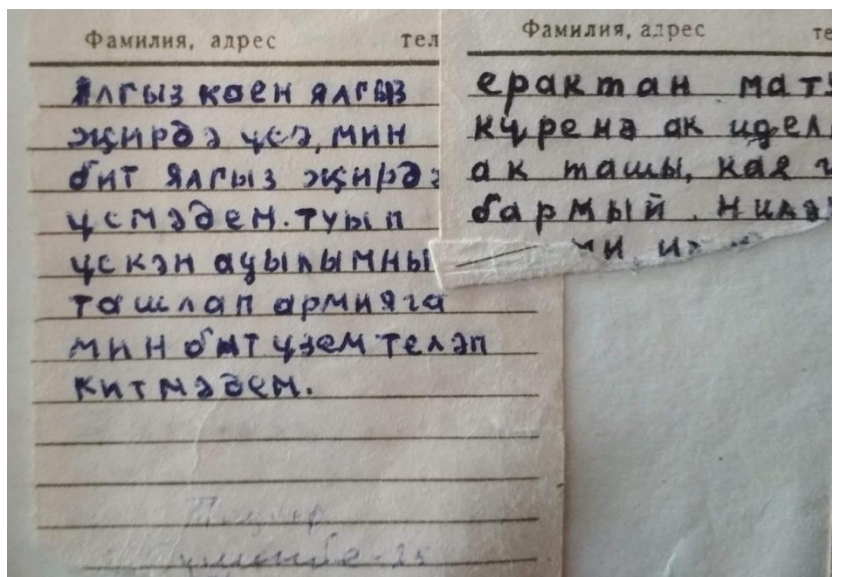 Фамилия, адрес тел
Ялгыз каен ялгыз
җирдә үсә, мин
бит ялгыз җирдә
үсмәдем. туып
үскән ауылымны
ташлап армияга
мин бит үзем теләп
китмәдем.
Фамилия, адрес те
ерактан мату
күренә ак идел
ак ташы, кая
бармый. Нилә